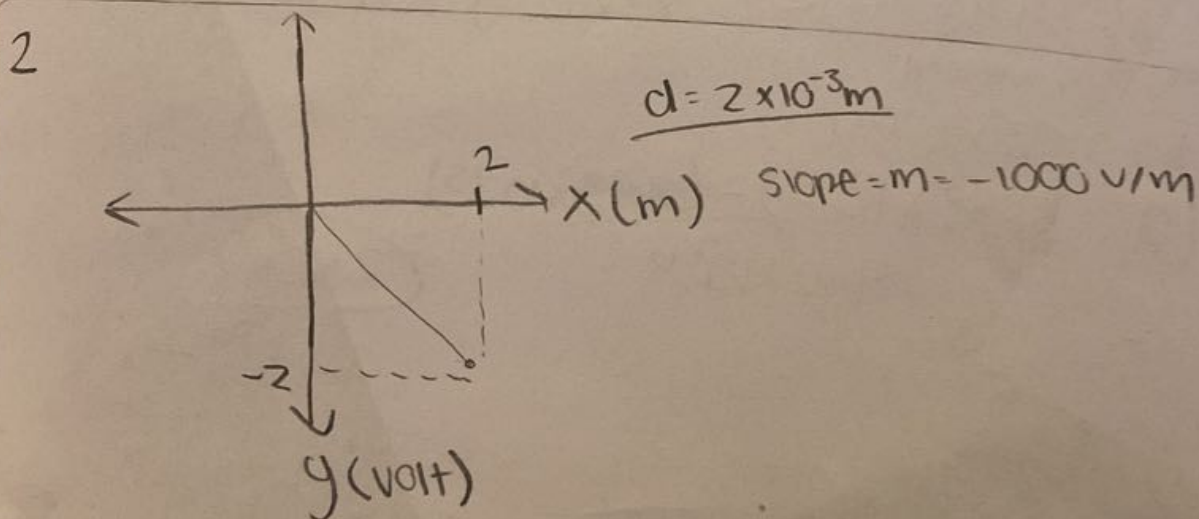 2
d = 2 × 10⁻³m
2
X (m)
slope = m = -1000 v/m
-2
y (volt)